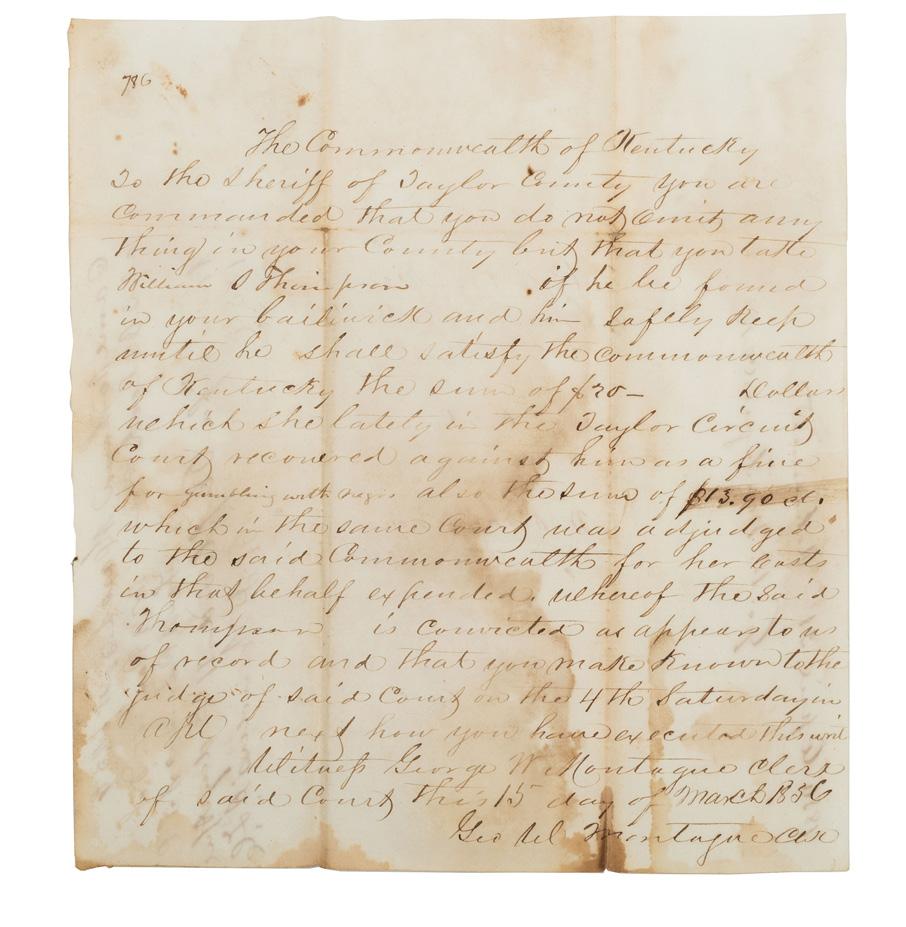 786
The Commonwealth of Kentucky
To the Sheriff of Taylor County you are
Commanded that you do not omit any
thing in your County but that you take
William S Thompson if he be found
in your bailiwick and him Safely Keep
until he shall satisfy the commonwealth
of Kentucky the sum of $20 – Dollars
which she lately in the Taylor Circuit
Court recovered against him as a fine
for gambling with negro also the sum of $13.90 ct.
which in the same Court was adjudged
to the said Commonwealth for her costs
in that behalf expended. whereof the said
Thompson is convicted as appears to us
of record and that you make Known to the
judge of said Court on the 4th Saturday in
Apl next how you have executed this writ
Witness George W Montague clerk
of said Court this 15 day of March 1856
Geo W Montague